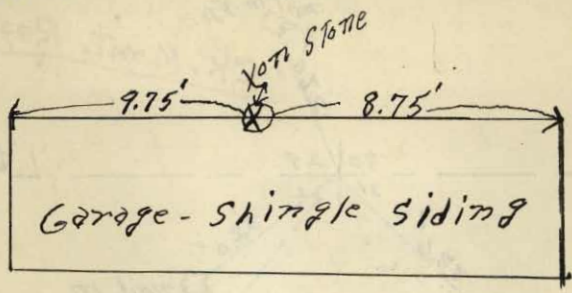 X on Stone
9.75' 8.75'
X
Garage - Shingle Siding